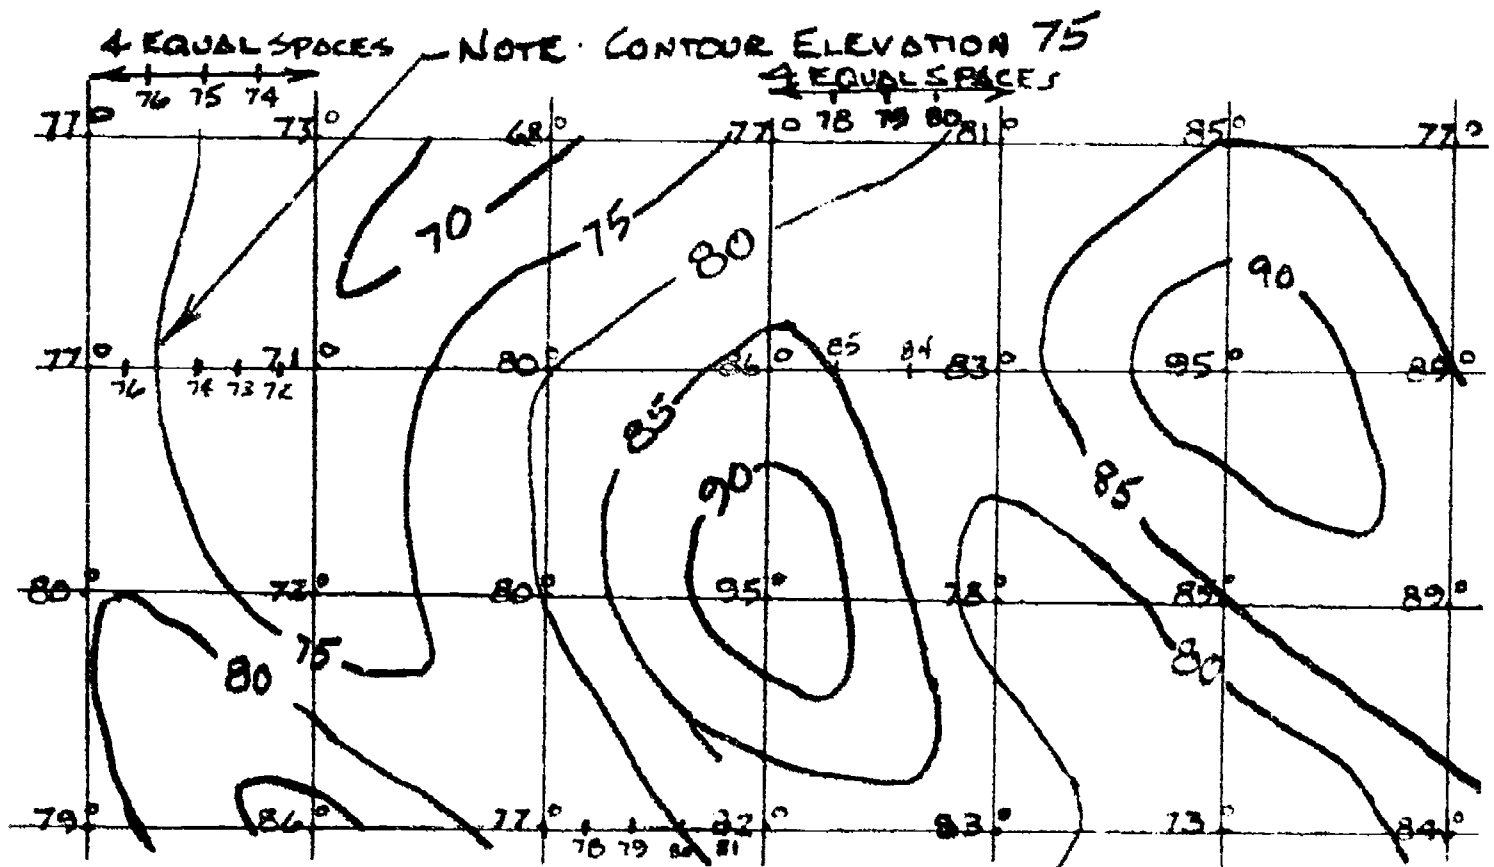 4 EQUAL SPACES
NOTE: CONTOUR ELEVATION 75
4 EQUAL SPACES
76 75 74
78 79 80
77° 73° 68° 77° 81° 85° 77°
70
75
80
90
77° 71° 80° 86° 85 84 83° 95° 85°
76 74 73 72
85
90
85
80° 72° 80° 95° 78° 85° 89°
75
80
80
79° 86° 77° 82° 83° 73° 84°
78 79 80 81